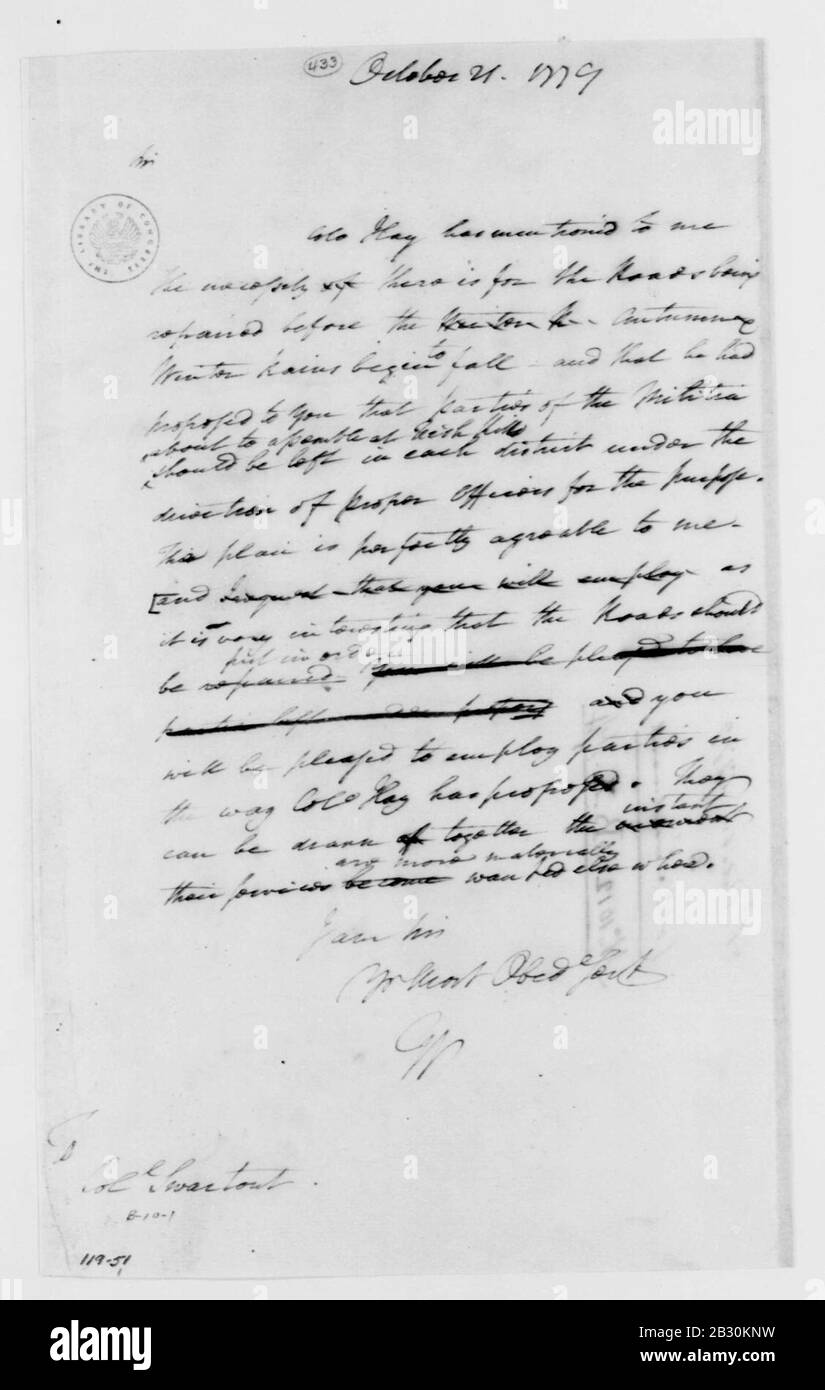 433
October 21. 1779
Sir
THE LIBRARY OF CONGRESS
Colo Hay has mentioned to me
the necessity of there is for the Roads being
repaired before the Winter R. Autumn &
Winter Rains begin to fall – and that he had
proposed to you that parties of the Militia
about to assemble at Fish Kill
should be left in each district under the
direction of proper Officers for the purpose.
This plan is perfectly agreable to me –
[and I request that you will employ as
it is very interesting that the Roads should
put in order
be repaired. you will be pleased to have
parties left under proper and you
will be pleased to employ parties in
the way Colo Hay has proposed. They
can be drawn of together the instant
their services are more materially
become wanted else where.
I am Sir
Yr Most Obedt Servt
GW
To
Colo Swartout.
B-10-1
119-51
alamy
Image ID: 2B30KNW
www.alamy.com